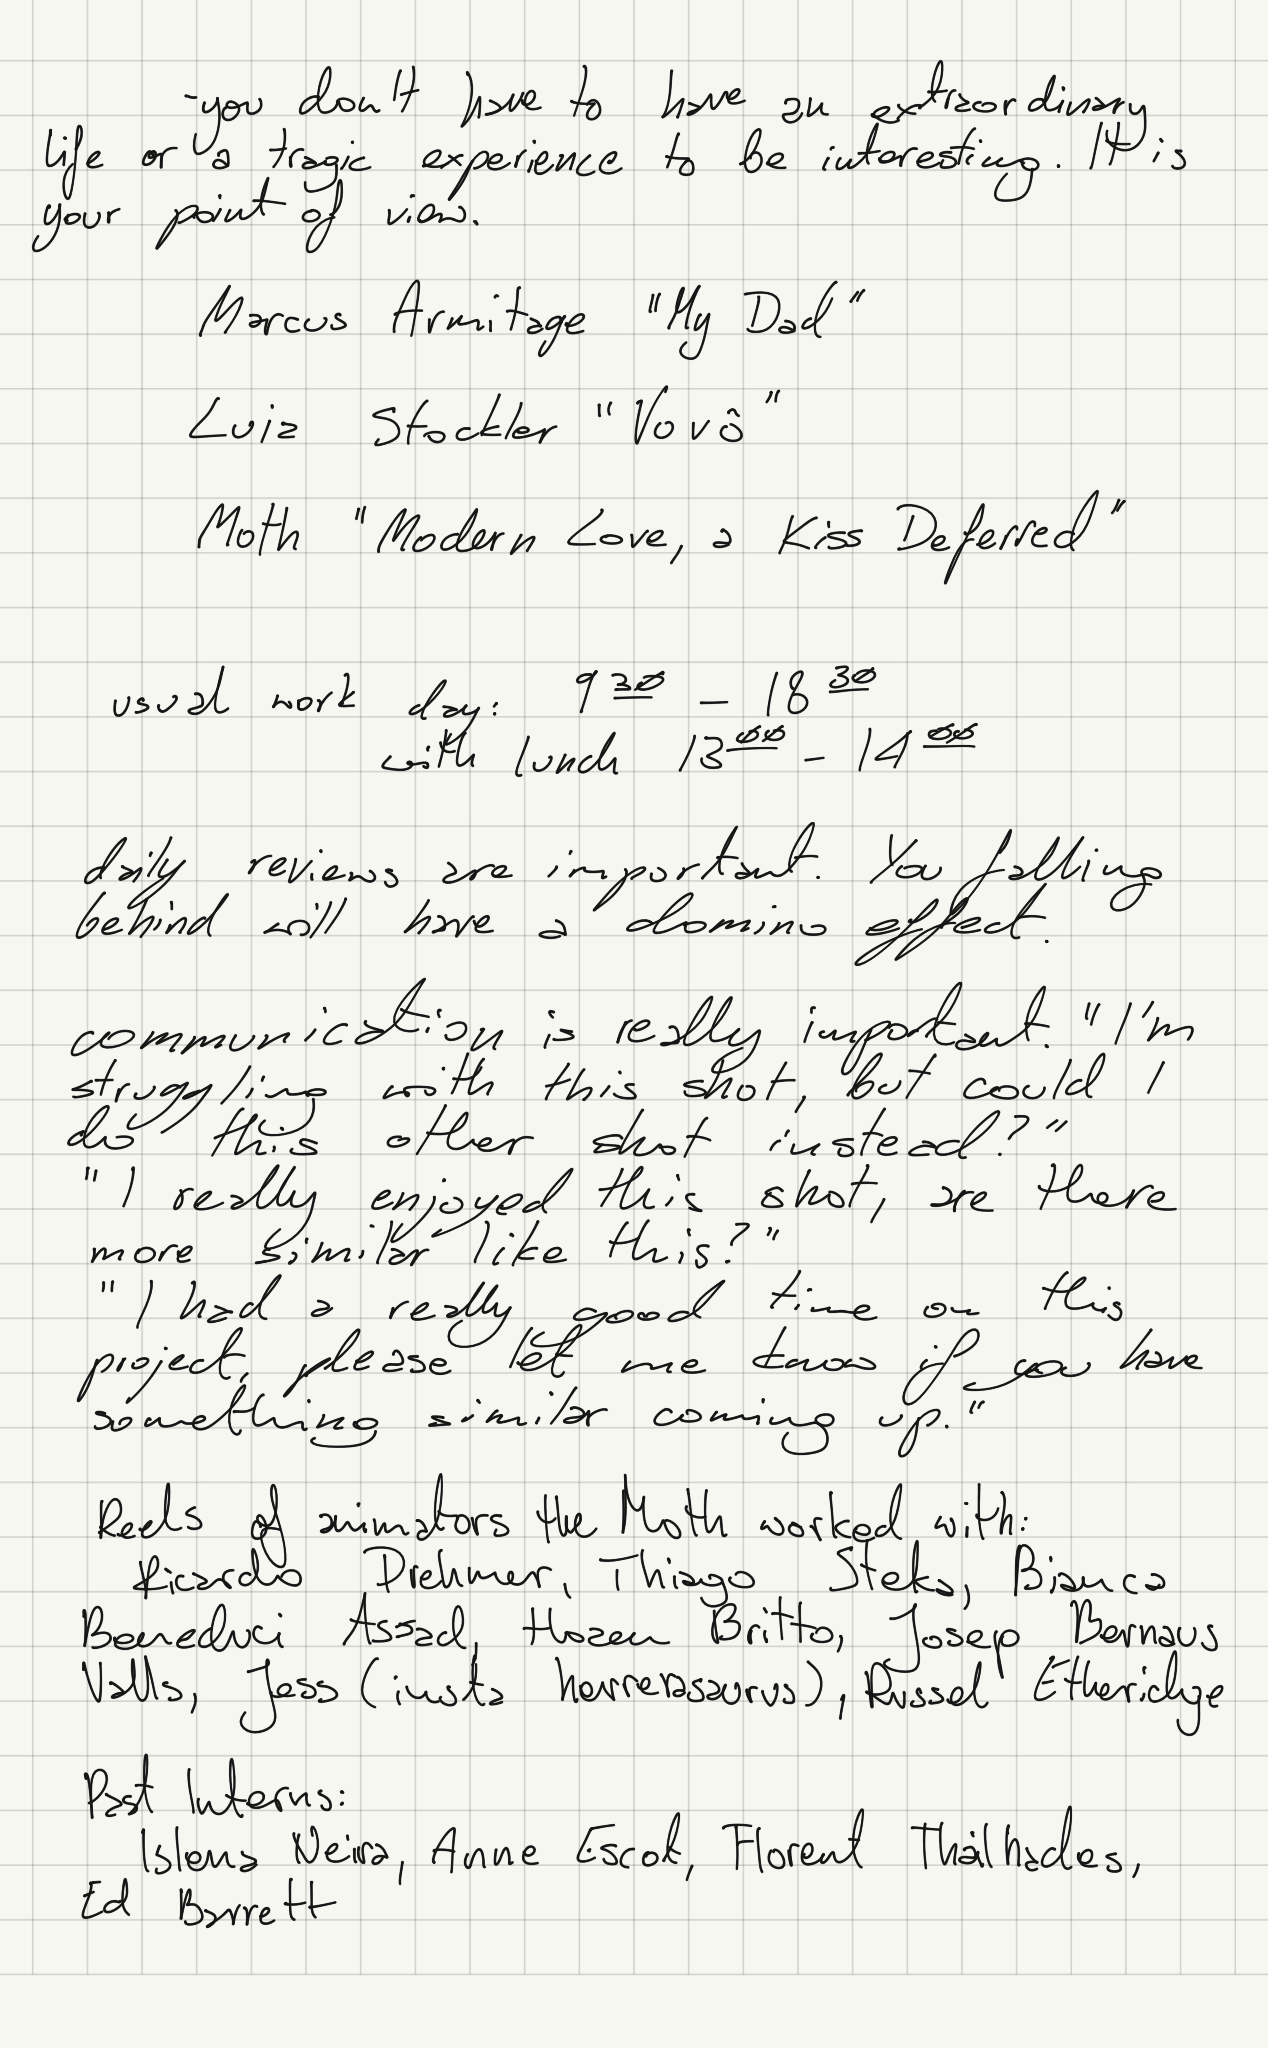 -you don't have to have an extraordinary
life or a tragic experience to be interesting. It is
your point of view.
Marcus Armitage "My Dad"
Luiz Stockler "Vovô"
Moth "Modern Love, a Kiss Deferred"
usual work day: 9 30 - 18 30
with lunch 13 00 - 14 00
daily reviews are important. You falling
behind will have a domino effect.
communication is really important. "I'm
struggling with this shot, but could I
do this other shot instead?"
"I really enjoyed this shot, are there
more similar like this?"
"I had a really good time on this
project, please let me know if you have
something similar coming up."
Reels of animators the Moth worked with:
Ricardo Drehmer, Thiago Steka, Bianca
Beneduci Assad, Hozen Britto, Josep Bernaus
Valls, Jess (insta herrerasaurus), Russel Etheridge
Past Interns:
Islena Neira, Anne Escot, Florent Thailhades,
Ed Barrett